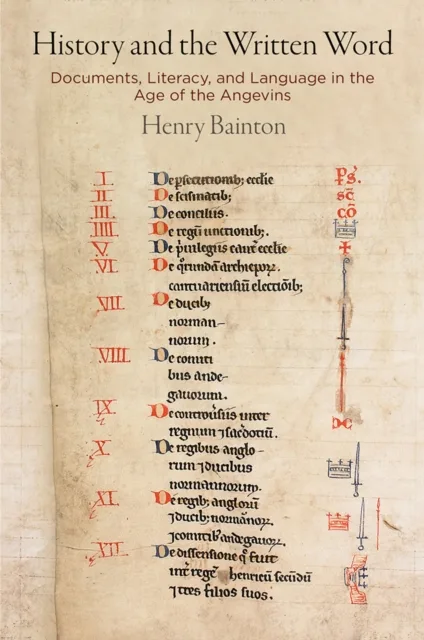 History and the Written Word
Documents, Literacy, and Language in the
Age of the Angevins
Henry Bainton
I. De ꝑsecutionib; ecclie ps.
II. De scismatib; sc
III. De conciliis. cō
IIII. De regū unctionib;.
V. De pͥuilegiis cant' ecclie
VI. De qͦrundā archiepoꝝ.
cantuariensiū electiōib;
VII. De ducib;
norman-
norum.
VIII. De comiti
bus ande-
gauorum.
IX. De controũsiis inter
regnum ⁊ sacdotiū.
X. De regibus anglo-
rum ⁊ ducibus
normannorum.
XI. De regib; angloꝝ
⁊ ducib; normānoꝝ.
⁊ comitib' andegauoꝝ.
XII. De dissensione q̄ fuit
int' regē henricū secūdū
⁊ tres filios suos.